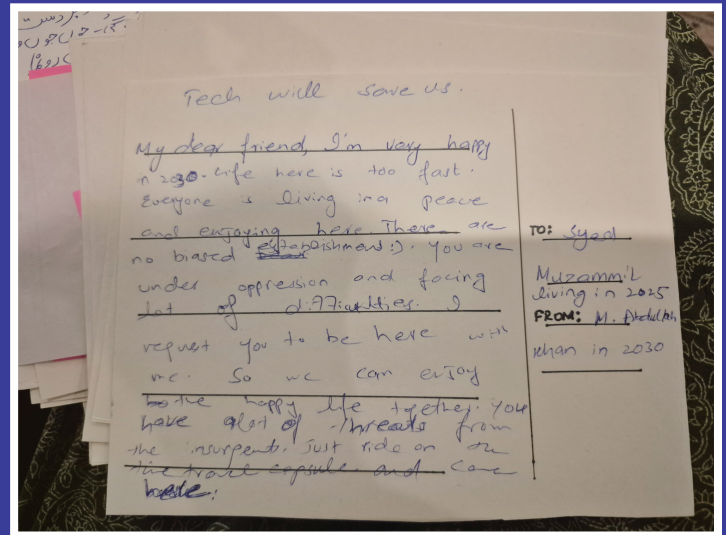 Tech will save us.
My dear friend, I'm very happy
in 2030. Life here is too fast.
Everyone is living in a peace
and enjoying here. There are
no biased establishment :). You are
under oppression and facing
lot of difficulties. I
request you to be here with
me. So we can enjoy
the happy life together. You
have alot of threats from
the insurgents. Just ride on the
time travel capsule and come
here.
TO: Syed
Muzammil
living in 2025
FROM: M. Abdullah
Khan in 2030